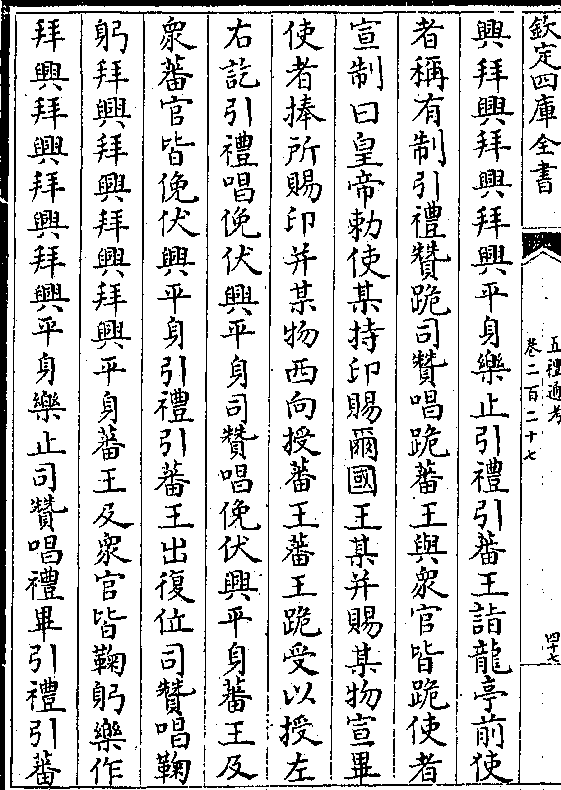 欽定四庫全書
五禮通考
卷二百二十七
四十七
興拜興拜興拜興平身樂止引禮引蕃王詣龍亭前使
者稱有制引禮贊跪司贊唱跪蕃王與衆官皆跪使者
宣制曰皇帝勅使某持印賜爾國王某并賜某物宣畢
使者捧所賜印并某物西向授蕃王蕃王跪受以授左
右訖引禮唱俛伏興平身司贊唱俛伏興平身蕃王及
衆蕃官皆俛伏興平身引禮引蕃王出復位司贊唱鞠
躬拜興拜興拜興拜興平身蕃王及衆官皆鞠躬樂作
拜興拜興拜興拜興平身樂止司贊唱禮畢引禮引蕃